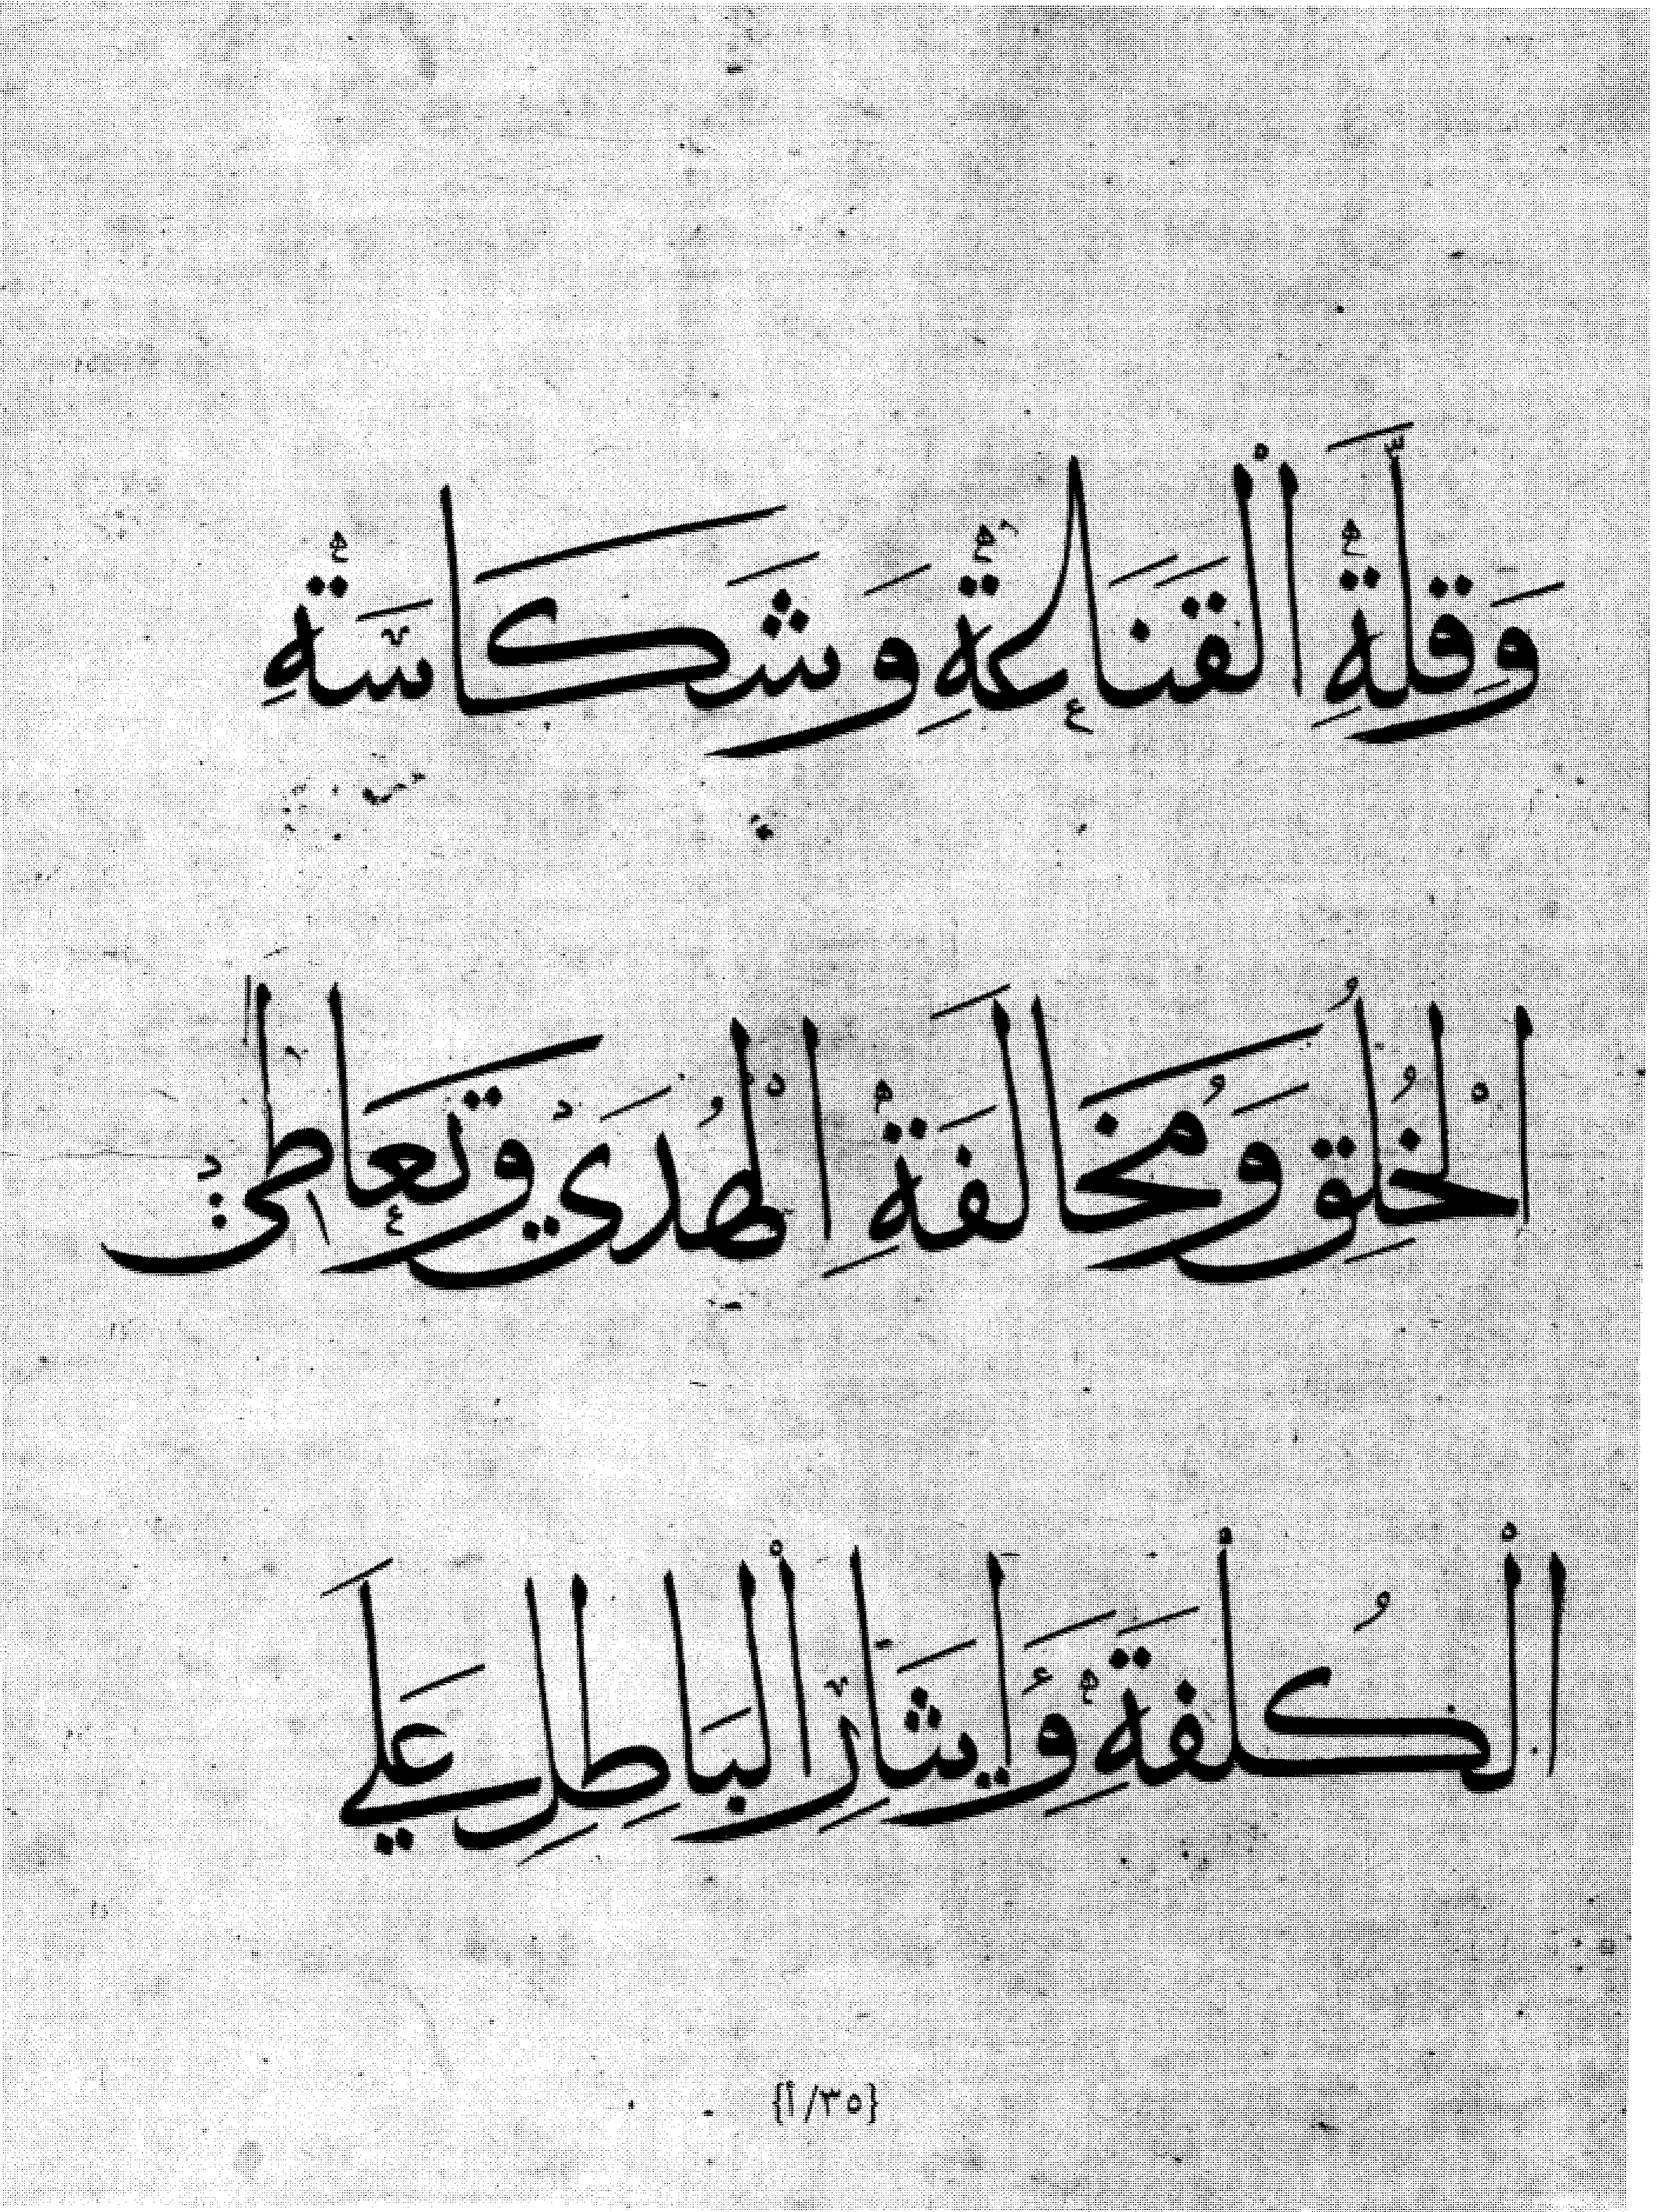 وَقِلَّةِ الْقَنَاعَةِ وَشَكَاسَةِ
الْخُلُقِ وَمُخَالَفَةِ الْهُدَي وَتَعَاطِي
الْكُلْفَةِ وَإيثَارِ الْبَاطِلِ عَلَي
{٣٥/أ}